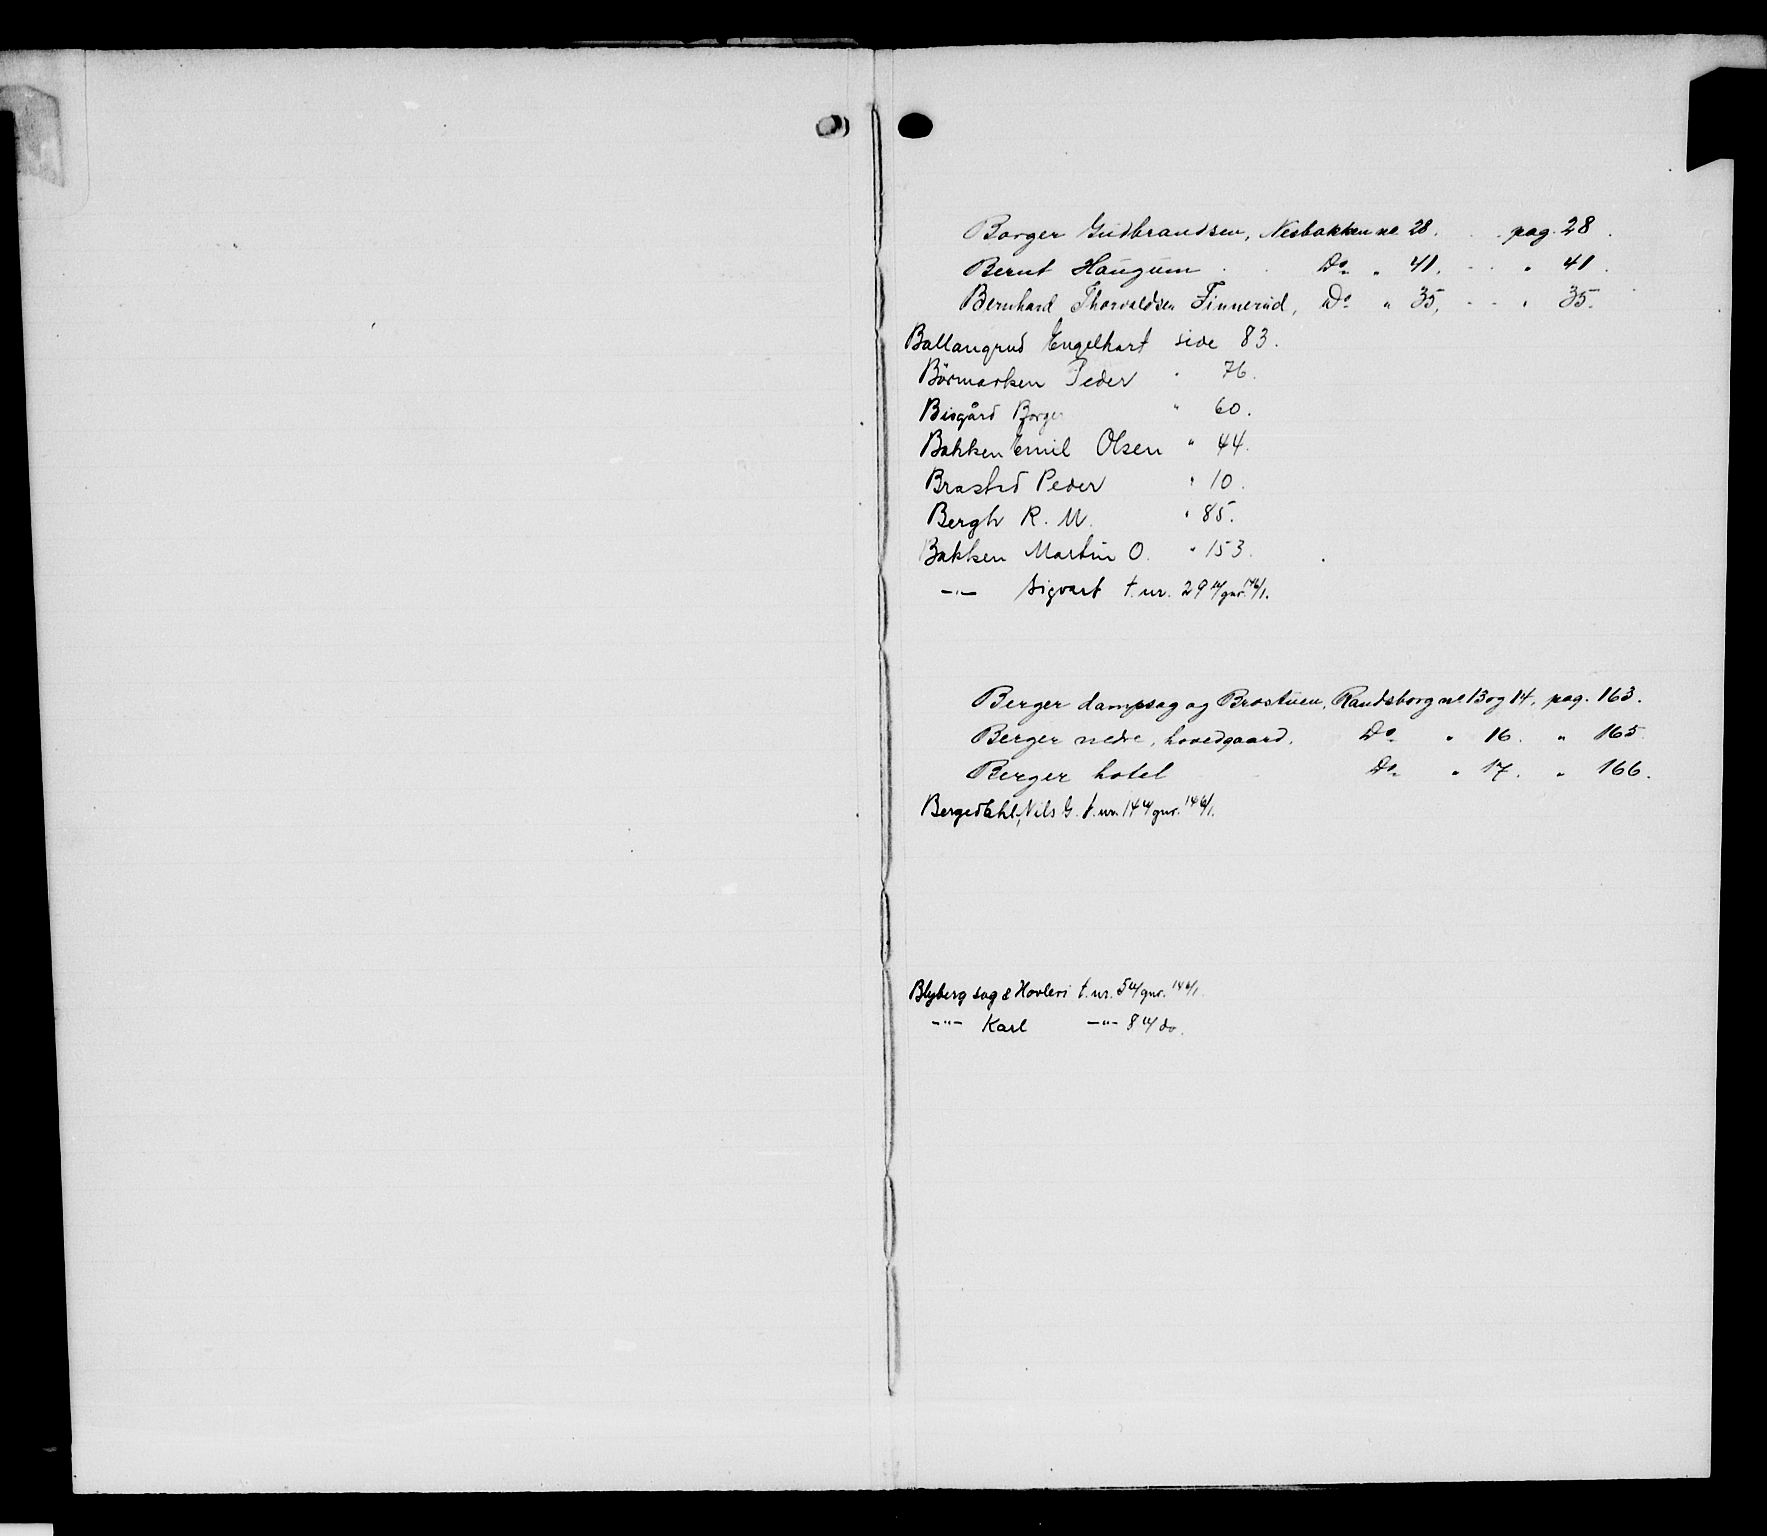 Borger Gudbrandsen, Nesbakken no 28. pag. 28.
Bernt Haugum Do. " 41. " 41.
Bernhard Thorvaldsen Finnerud, Do. " 35, " 35.
Ballangrud Engelhart side 83.
Börmarken Peder " 76.
Bisgård Borger " 60.
Bakken Emil Olsen " 44.
Brasted Peder " 10.
Bergh R. M. " 85.
Bakken Martin O. " 153.
—"— Sigvart t. nr. 29 av gnr. 146/1.
Berger dampsag og Brostuen, Randsborg no 13 og 14, pag. 163.
Berger nedre, hovedgaard. Do. " 16. " 165.
Berger hotel Do. " 17. " 166.
Bergedahl, Nils G. t. nr. 14 av gnr. 146/1.
Blyberg sag & Hövleri t. nr. 5 av gnr. 146/1.
—"— Karl —"— 8 av do.